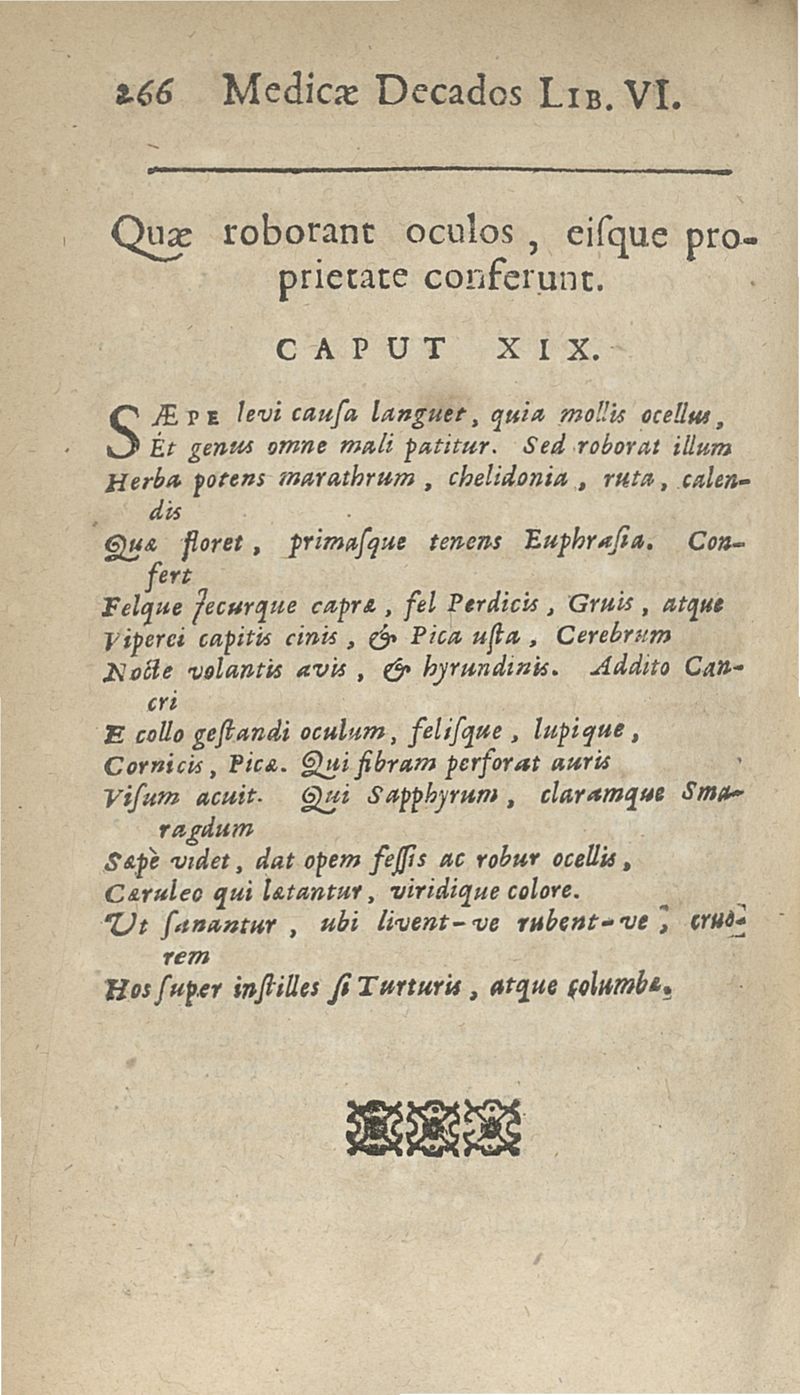 266 Medicæ Decados LIB. VI.
Quæ roborant oculos, eiſque pro-
prietate conferunt.
CAPUT XIX.
SÆPE levi cauſa languet, quia mollis ocellus,
Et genus omne mali patitur. Sed roborat illum
Herba potens marathrum, chelidonia, ruta, calen-
dis
Quæ floret, primaſque tenens Euphraſia. Con-
fert
Felque Jecurque capræ, fel Perdicis, Gruis, atque
Viperei capitis cinis, & Pica uſta, Cerebrum
Nocte volantis avis, & hyrundinis. Addito Can-
cri
E collo geſtandi oculum, feliſque, lupique,
Cornicis, Picæ. Qui fibram perforat auris
Viſum acuit. Qui Sapphyrum, claramque Sma-
ragdum
Sæpè videt, dat opem feſſis ac robur ocellis,
Cæruleo qui lætantur, viridique colore.
Ut ſanantur, ubi livent-ve rubent-ve, cruo-
rem
Hos ſuper inſtilles ſi Turturis, atque columbæ.